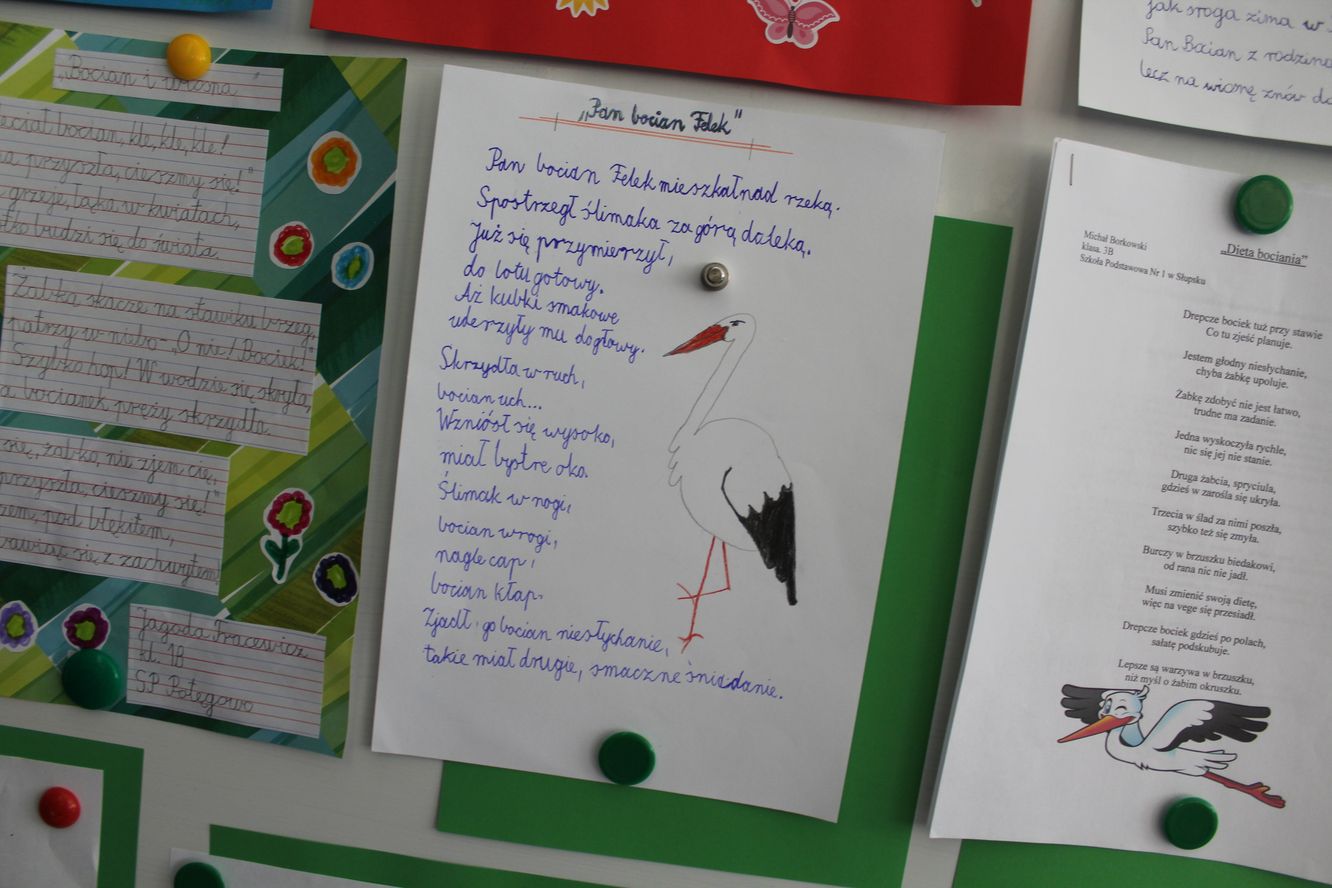 „Bocian i wiosna"
bocian, kle, kle, kle!
przyszła, cieszmy się!"
grzeje, łąka w kwiatach,
budzi się do świata.
Żabka skacze na stawiku brzeg,
patrzy w niebo - „O nie! Bociek!
Szybko hop! W wodzie się skryła,
a bocianek pręży skrzydła.
się, żabko, nie zjem cię,
przyszła, cieszmy się!"
pod błękitem,
się z zachwytem.
Jagoda
kl. 1B
SP Potęgowo
„Pan bocian Felek"
Pan bocian Felek mieszkał nad rzeką.
Spostrzegł ślimaka za górą daleką.
Już się przymierzył,
do lotu gotowy.
Aż kubki smakowe
uderzyły mu do głowy.
Skrzydła w ruch,
bocian uch...
Wzniósł się wysoko,
miał bystre oko.
Ślimak w nogi,
bocian wrogi,
nagle cap,
bocian kłap.
Zjadł go bocian niesłychanie,
takie miał drugie, smaczne śniadanie.
jak sroga zima w
Pan Bocian z rodziną
lecz na wiosnę znów
Michał Borkowski
klasa. 3B
Szkoła Podstawowa Nr 1 w Słupsku
„Dieta bociania"
Drepcze bociek tuż przy stawie
Co tu zjeść planuje.
Jestem głodny niesłychanie,
chyba żabkę upoluje.
Żabkę zdobyć nie jest łatwo,
trudne ma zadanie.
Jedna wyskoczyła rychle,
nic się jej nie stanie.
Druga żabcia, spryciula,
gdzieś w zarośla się ukryła.
Trzecia w ślad za nimi poszła,
szybko też się zmyła.
Burczy w brzuszku biedakowi,
od rana nic nie jadł.
Musi zmienić swoją dietę,
więc na vege się przesiadł.
Drepcze bociek gdzieś po polach,
sałatę podskubuje.
Lepsze są warzywa w brzuszku,
niż myśl o żabim okruszku.